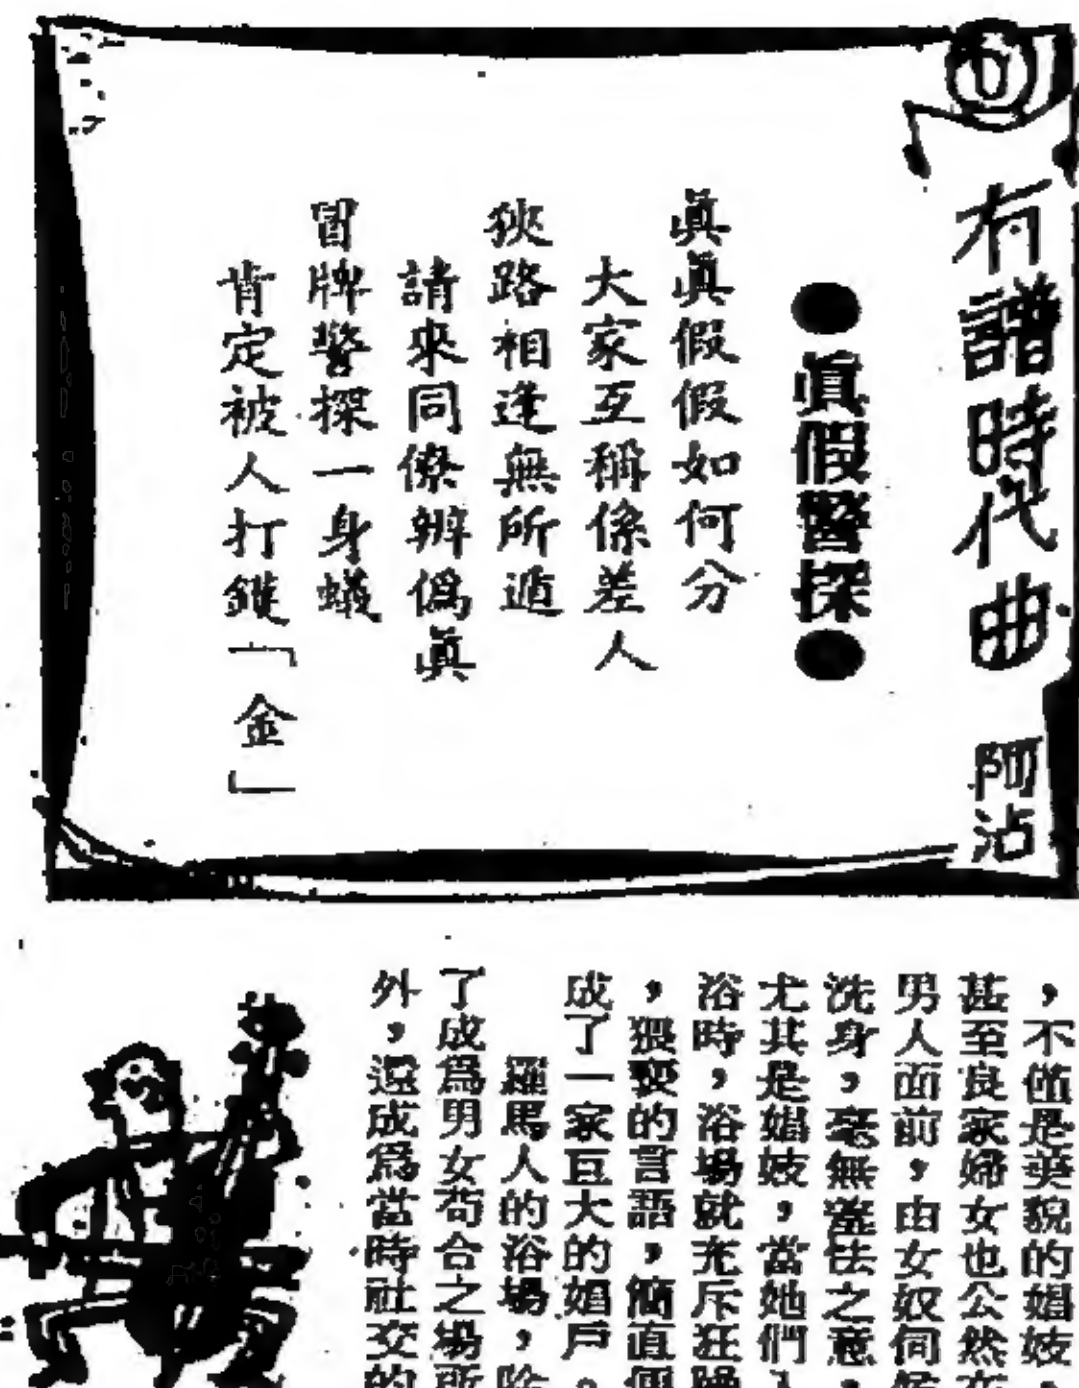 有譜時代曲 阿沾
●真假警探●
眞眞假假如何分
大家互稱係差人
狹路相逢無所遁
請來同僚辨僞眞
冒牌警探一身蟻
肯定被人打鑊「金」
，不僅是美貌的娼妓，
甚至良家婦女也公然在
男人面前，由女奴伺候
洗身，毫無羞怯之意，
尤其是娼妓，當她們入
浴時，浴場就充斥狂躁
，猥褻的言語，簡直便
成了一家巨大的娼戶。
羅馬人的浴場，除
了成爲男女苟合之場所
外，還成爲當時社交的